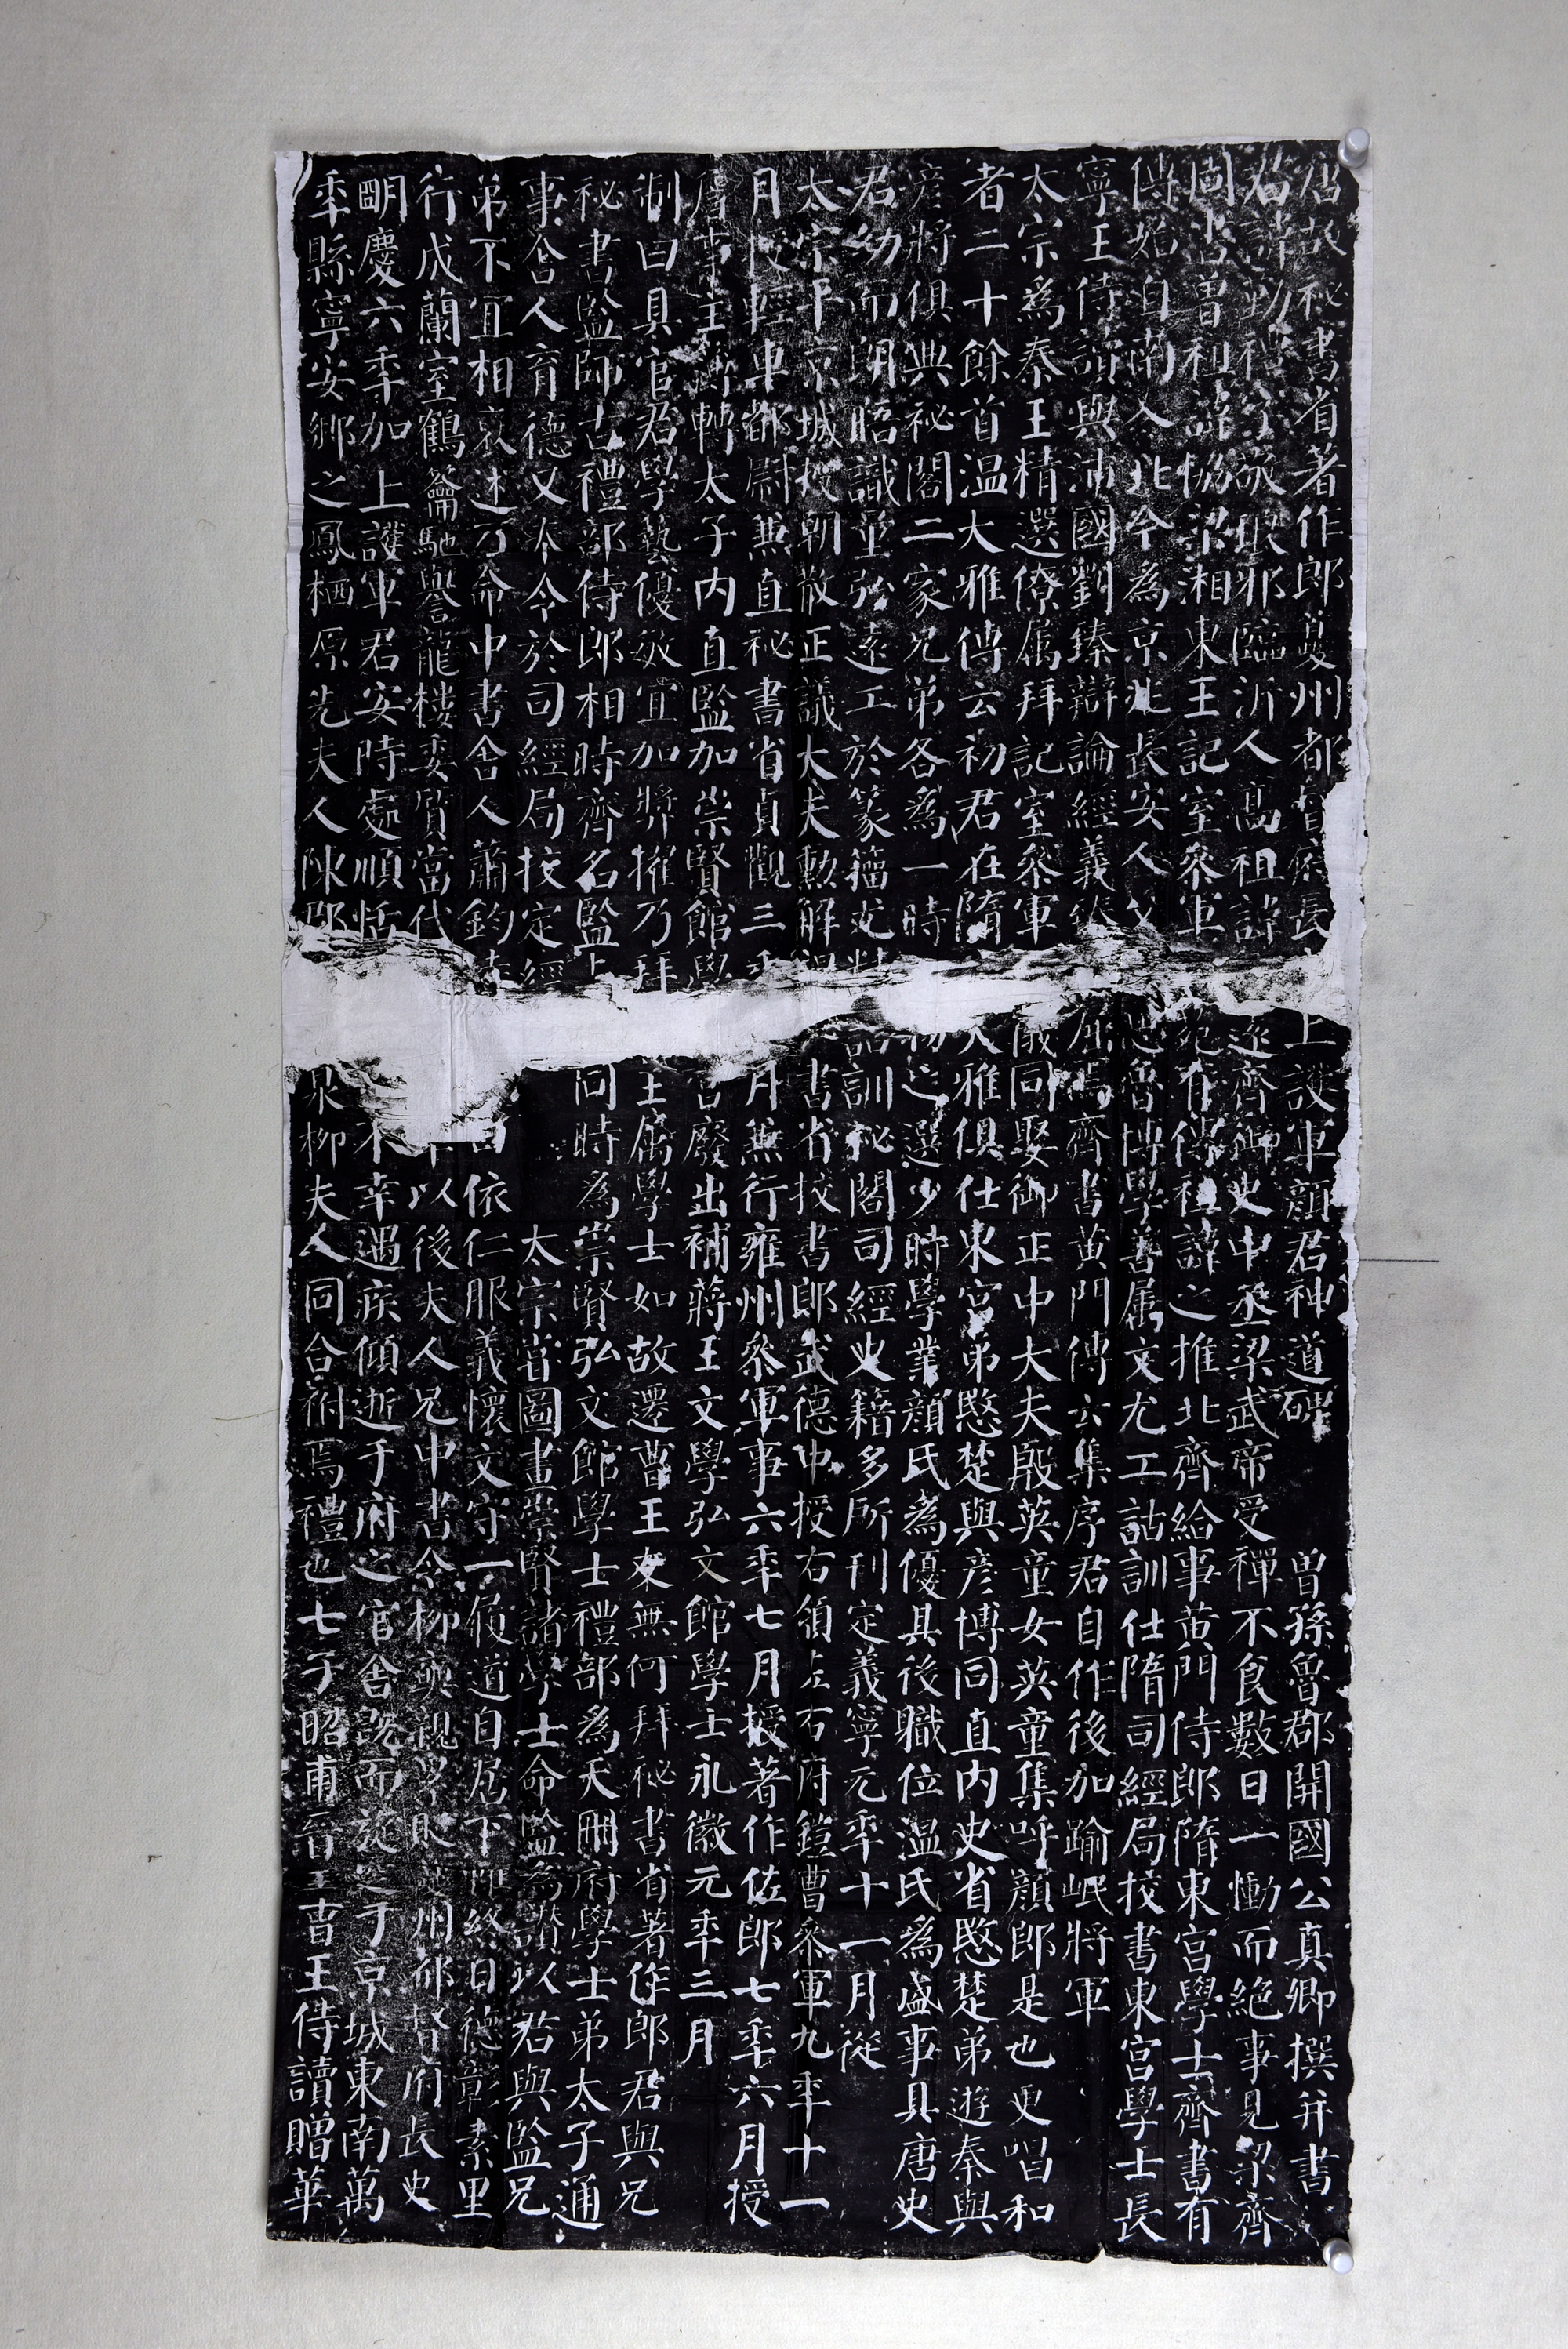 唐故祕書省著作郎夔州都督府長上護軍顏君神道碑 曾孫魯郡開國公真卿撰并書
君諱勤禮字敬琅邪臨沂人高祖諱遠齊御史中丞梁武帝受禪不食數日一慟而絕事見梁齊
周書曾祖諱協梁湘東王記室參軍文苑有傳祖諱之推北齊給事黃門侍郎隋東宮學士齊書有
傳始自南入北今為京兆長安人父思魯博學善屬文尤工詁訓仕隋司經局校書東宮學士長
寧王侍讀與沛國劉臻辯論經義臻屈焉齊書黃門傳云集序君自作後加踰岷將軍
太宗為秦王精選僚屬拜記室參軍儀同娶御正中大夫殷英童女英童集呼顏郎是也更唱和
者二十餘首溫大雅傳云初君在隋大雅俱仕東宮弟愍楚與彥博同直內史省愍楚弟遊秦與
彥將俱典祕閣二家兄弟各為一時物之選少時學業顏氏為優其後職位溫氏為盛事具唐史
君幼而朗晤識量弘遠工於篆籀尤精詁訓祕閣司經史籍多所刊定義寧元年十一月從
太宗平京城授朝散正議大夫勳解褐書省校書郎武德中授右領左右府鎧曹參軍九年十一
月授輕車都尉兼直祕書省貞觀三年月兼行雍州參軍事六年七月授著作佐郎七年六月授
詹事主簿轉太子內直監加崇賢館學宮廢出補蔣王文學弘文館學士永徽元年三月
制曰具官君學藝優敏宜加獎擢乃拜王屬學士如故遷曹王友無何拜祕書省著作郎君與兄
祕書監師古禮部侍郎相時齊名監與同時為崇賢弘文館學士禮部為天冊府學士弟太子通
事舍人育德又奉令於司經局校定經 太宗嘗圖畫崇賢諸學士命監為讚以君與監兄
弟不宜相褒述乃命中書舍人蕭鈞特曰依仁服義懷文守一履道自居下帷終日德彰素里
行成蘭室鶴籥馳譽龍樓委質當代以後夫人兄中書令柳奭親累貶夔州都督府長史
明慶六年加上護軍君安時處順恬不幸遇疾傾逝于府之官舍既而旋窆于京城東南萬
年縣寧安鄉之鳳栖原先夫人陳郡泉柳夫人同合祔焉禮也七子昭甫晉王曹王侍讀贈華